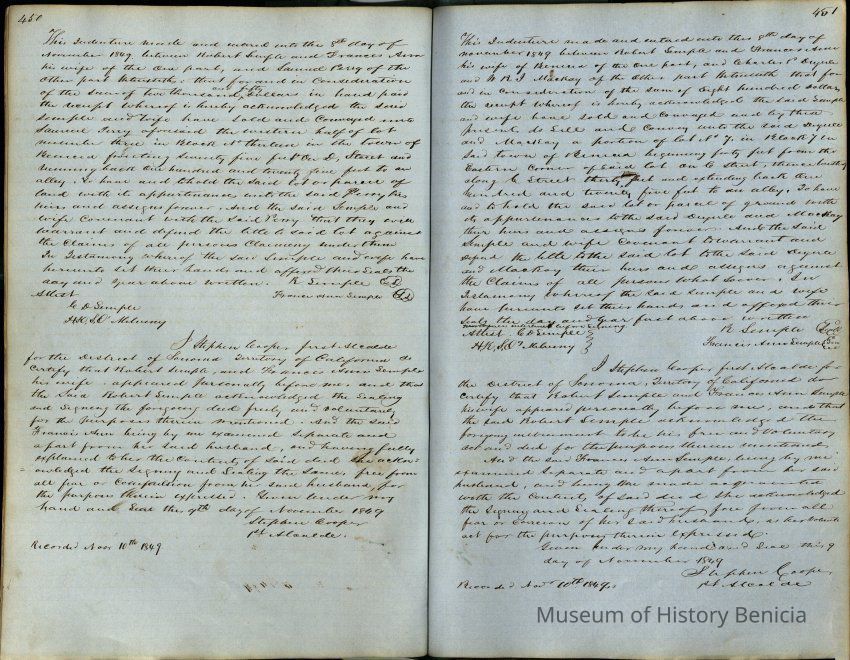 450
This Indenture made and entered into the 8th day of
November 1849 between Robert Semple and Frances Ann
his wife of the One part, and Samuel Perry of the
Other part Witnesseth: that forward in Consideration
and fifty
of the sum of two thousand Dollars in hand paid
the receipt whereof is hereby acknowledged the said
Semple and wife have sold and Conveyed unto
Samuel Perry aforesaid the western half of lot
number three in Block Nº thirteen in the town of
Benicia fronting Seventy five feet On D, Street and
running back One hundred and twenty five feet to an
alley. To have and to hold the said lot or parcel of
land with its appurtinances unto the said Perry his
heirs and assigns forever And the said Semple and
wife Covenant with the Said Perry that they will
warrant and defend the title to said lot against
the Claims of all persons Claiming under them
In Testamony whereof the said Semple and wife have
hereunto set their hands and affixed their Seals the
day and year above written. R Semple
Attest Frances Ann Semple
C D Semple
I Stephen Cooper, first Alcalde
for the district of Sonoma Territory of California do
Certify that Robert Semple, and Frances Ann Semple
his wife appeared personally before me, and that
the Said Robert Semple acknowledged the Sealing
and Signing the foregoing deed freely and voluntarily
for the purposes therein mentioned. And the said
Frances Ann being by me examined Separate and
apart from her said husband, and having fully
explained to her the Contents of Said deed She acknow-
ledged the Signing and Sealing the Same, free from
all fear or Compulsion from her said husband, for
the purpose therein expressed. Given under my
hand and Seal this 9th day of November 1849
Stephen Cooper
1st Alcalde.
Recorded Nov 10th 1849
451
This Indenture made and entered into this 8th day of
November 1849 between Robert Semple and Frances Ann
his wife of Benicia of the One part, and Charles
and Mackay of the Other part Witnesseth that for
and in Consideration of the sum of Eight hundred dollars
the receipt whereof is hereby acknowledged the said Semple
and wife have sold and Conveyed and by these
presents do Sell and Convey unto the said
and Mackay a portion of lot Nº 7, in Block in
Said town of Benicia beginning forty feet from the
Eastern Corner of said lot on street, thence
along Street thirty feet and extending back One
hundred and twenty five feet to an alley. To have
and to hold the said lot or parcel of ground with
its appurtenances to the said and Mackay
their heirs and assigns forever. And the Said
Semple and wife Covenant to warrant and
defend the title to the said lot to the Said
and Mackay their heirs and assigns against
the Claims of all persons what Soever. In
Testamony whereof the Said Semple and wife
have hereunto set their hands and affixed their
Seals the day and Year first above written
Attest C D Semple R Semple
Frances Ann Semple
I Stephen Cooper first Alcalde for
the District of Sonoma, Teritory of California do
Certify that Robert Semple and Frances Ann Semple
his wife appeared personally before me, and that
the said Robert Semple acknowledged the
foregoing instrument to be his free and Voluntary
act and deed for the purposes therein mentioned.
And said Frances Ann Semple, being by me
examined Separate and apart from her said
husband, and being the made acquainted
with the Contents of said deed She acknowledged
the Signing and Sealing thereof free from all
fear or Coercion of her Said husband, as her Volunta
act for the purposes therein Expressed
Given Under my hand and Seal this 9
day of November 1849
Stephen Cooper
1st Alcalde
Recorded Nov 10th 1849.
Museum of History Benicia